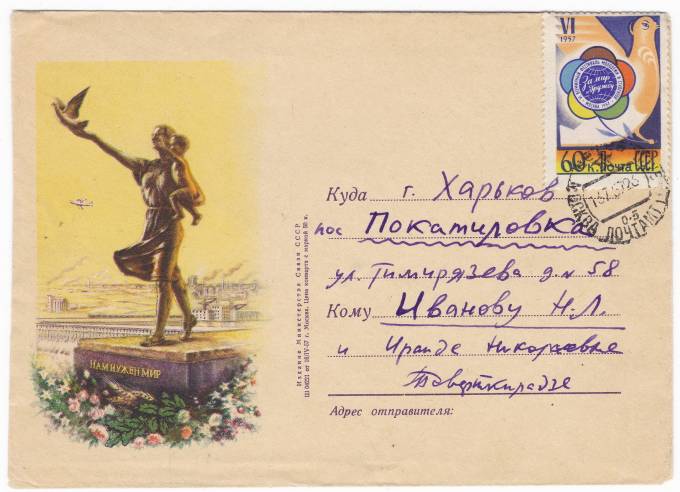 VI
1957
За мир и дружбу
60 к. почта СССР
МОСКВА ПОЧТАМТ
Куда г. Харьков
пос Покатиловка
ул. Тимирязева д. № 58
Кому Иванову Н.Л.
и Ираиде Николаевне
Адрес отправителя:
НАМ НУЖЕН МИР
Издание Министерства Связи СССР
г. Москва. Цена конверта с маркой